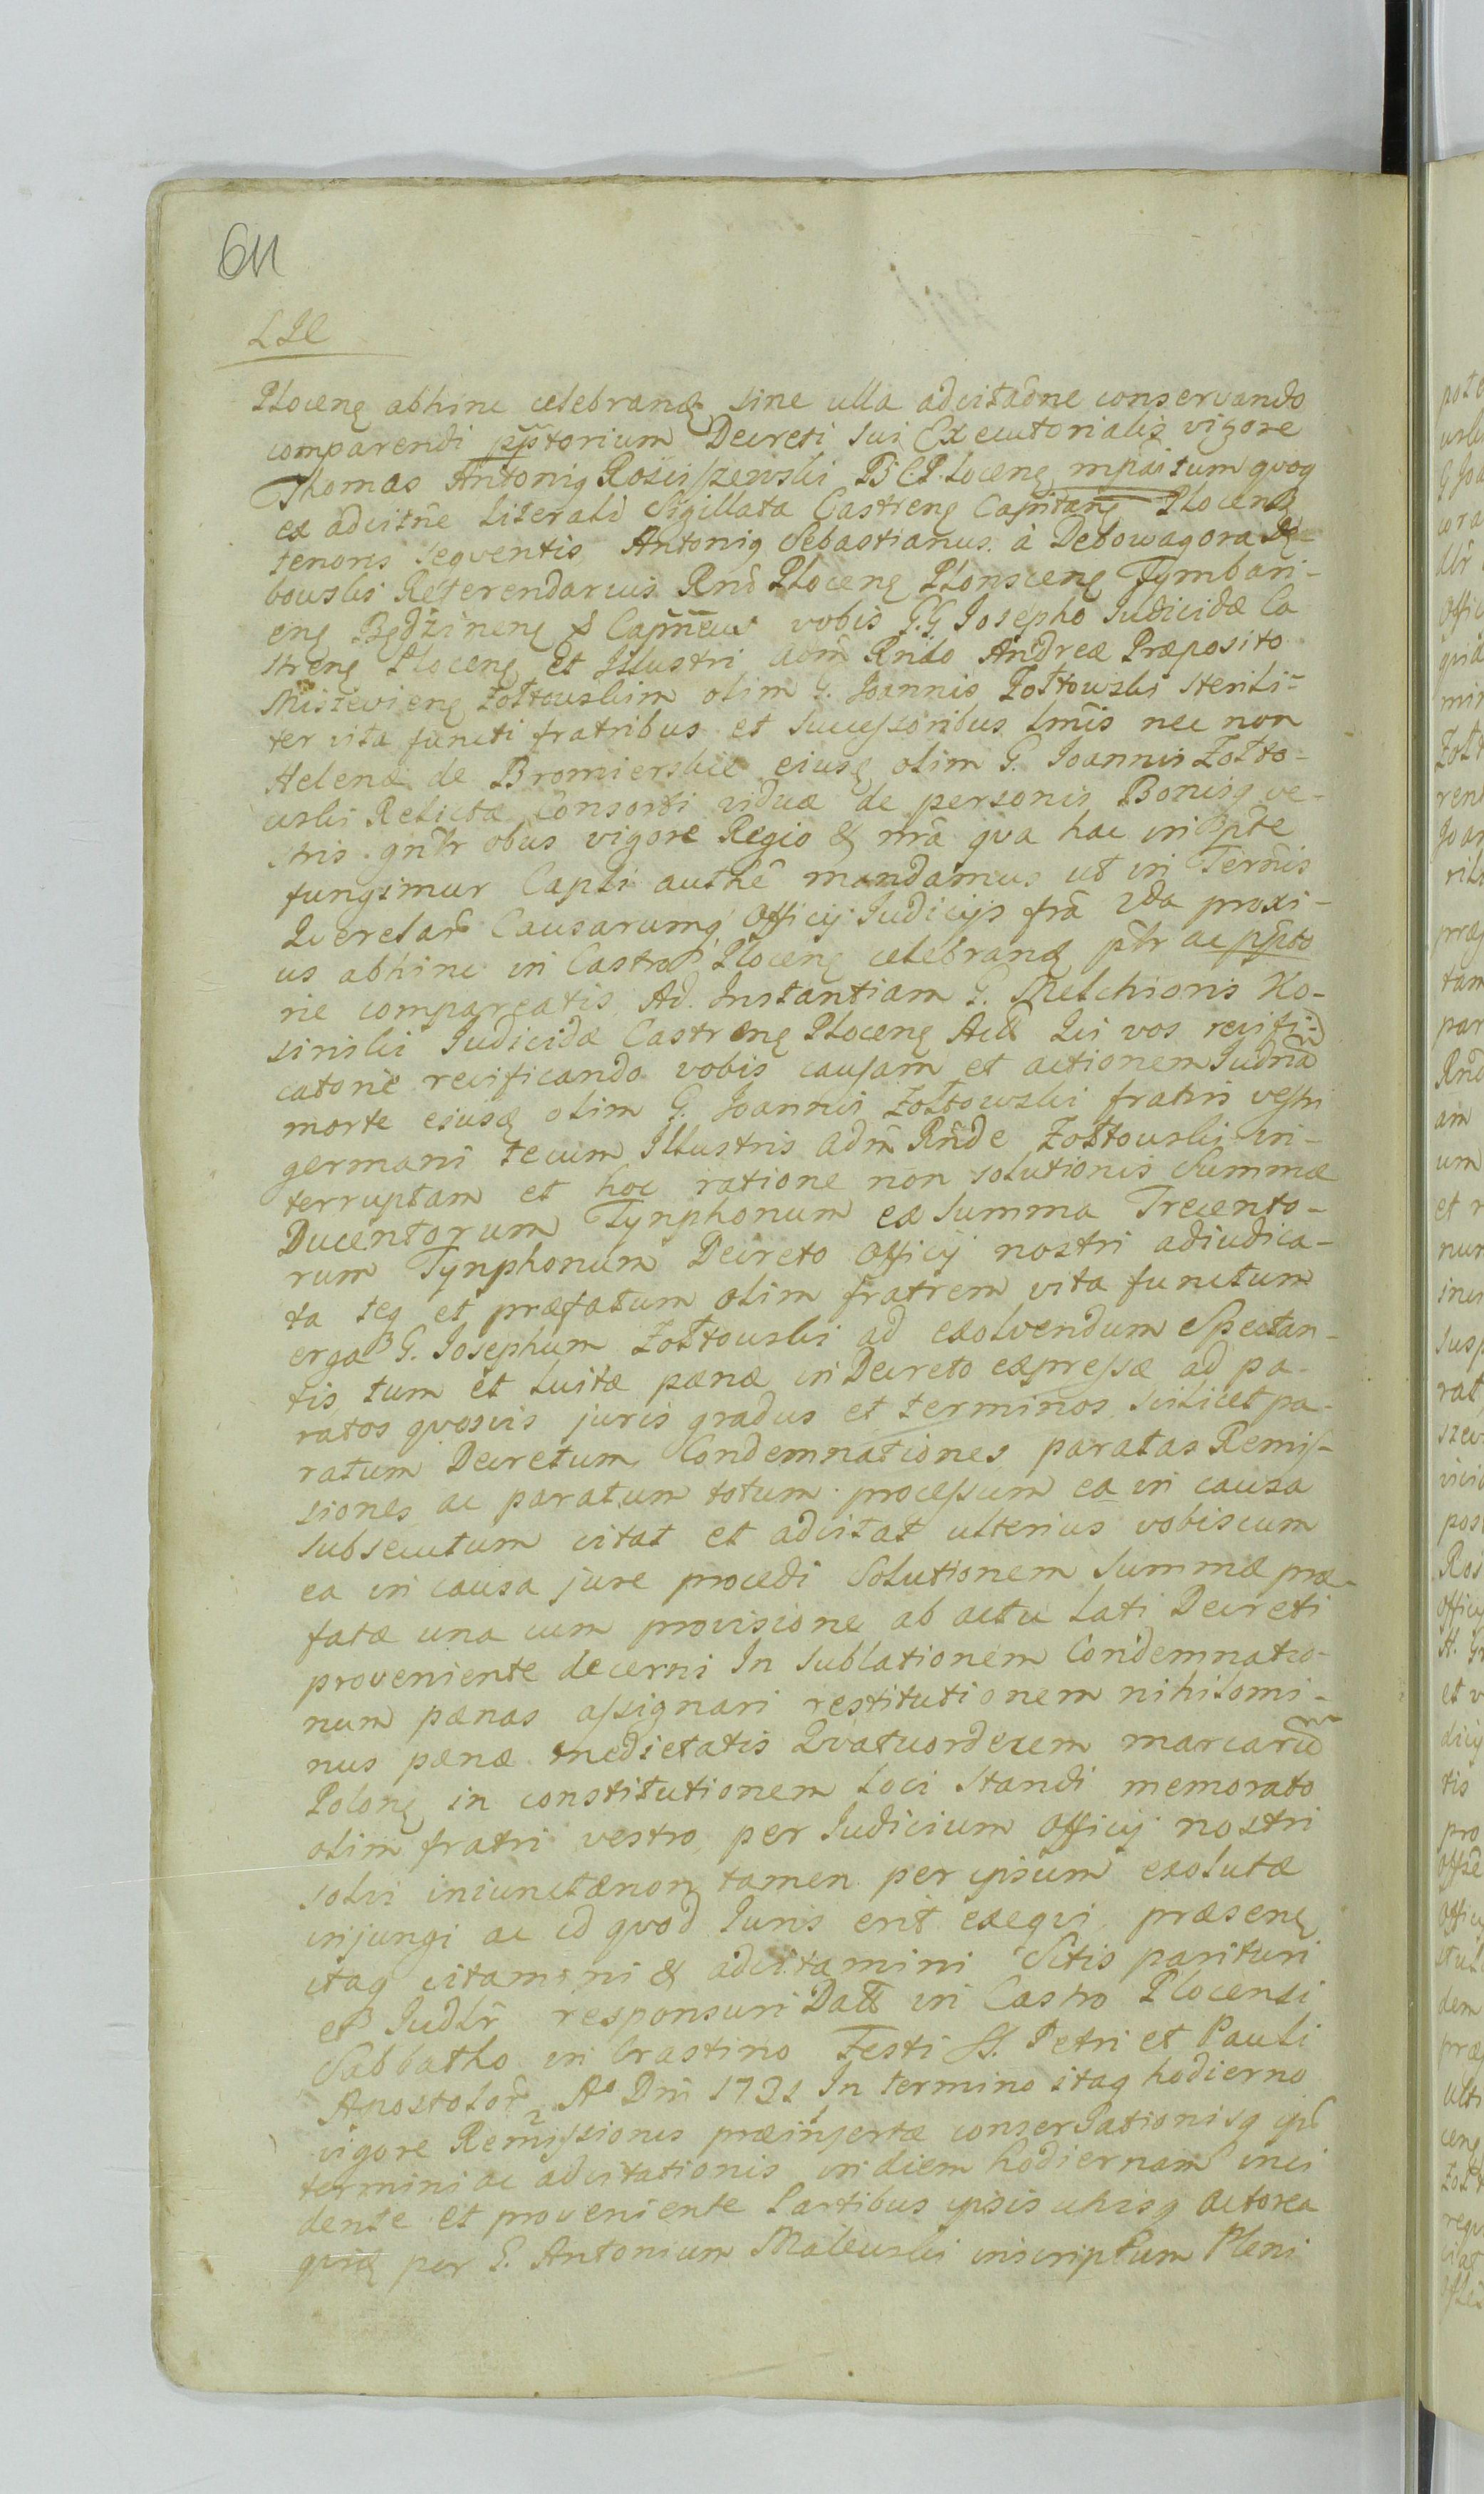 611
LII
Ploceng abhinc celebrandg sine ulla adcitaõne conservando
comparendi pptorium Decreti sui Executorialis vigore
Thomas Antonig Rościszewski B C. P. Loceng mpaitum quoq
ex adcitñe Literali Sigillata Castreng Capitang Ploceng
tenoris sequentis Antonig Sebastianus à Debowagora Dę
bowski Referendarius Rnõ Ploceng Plonsceng Tymbari-
eng Będzineng & Capnẽus vobis G.G Josepho Judicidæ Ca
streng Ploceng Et Illustri adm̃ Rndo Andreæ Præposito
Miszevieng Żołtowskim olim G. Joannis Żołtowski sterili-
ter vita functi fratribus et successoribus Lmis nec non
Helenæ de Bromierskie eiusq olim G. Joannis Żołto-
wski Relictæ Consorti viduæ de personis Bonisq ve-
stris gñlr obus vigore Regio & nrã qva hac in pte
fungimur Capli authẽ mandamus ut in Termis
Querelar̃ Causarumq Officij Judicijs frã 2da proxi-
us abhinc in Castro Ploceng celebrang plr ac ppto
rie compareatis Ad Instantiam G. Melchioris Ko-
sinski Judicidæ Castreng Ploceng Act Qui vos recifi-
catorie recificando vobis causam et actionem Judriã
morte eiusq olim G. Joannis Żołtowski fratris vestri
germani tecum Illustris adm̃ Rñde Żołtowski in-
terruptam et hoc ratione non solutionis Summæ
Ducentorum Tynphonum ex Summa Trecento-
rum Tynphonum Decreto Officij nostri adiudica-
ta teq et præfatum olim fratrem vita functum
erga G. Josephum Żołtowski ad exolvendum Spectan-
tis tum et luitæ pænæ in Decreto expressæ ad pa-
ratos qvosvis juris gradus et terminos scilicet pa-
ratum Decretum Condemnationes paratas Remis-
siones ac paratum totum processum ea in causa
subsecutum citat et adcitat ulterius vobiscum
ea in causa jure procedi Solutionem Summæ præ-
fatæ una cum provisione ab actu Lati Decreti
proveniente decerni In Sublationem Condemnatio-
num pænas assignari restitutionem nihilomi-
nus pænæ medietatis Qvatuordecem marcarũ
Polong in constitutionem Loci Standi memorato
olim fratri vestro per Judicium Officij nostri
solvi iniunctænonq tamen per ipsum exolutæ
injungi ac id quod Juris erit exeqvi præseng
itaq citamini & adcitamini Sitis parituri
et Judlr̃ responsuri Datt in Castro Plocensi
Sabbatho in Crastino Festi SS. Petri et Pauli
Apostolor̃ A° Dni 1731 In termino itaq hodierno
vigore Remissionis præinsertæ conservationisq ipõ
termini ac adcitationis in diem hodiernam inci
dente et proveniente Partibus ipsis uhisq actorea
qvidg per G. Antonium Malewski inscriptum Pleni